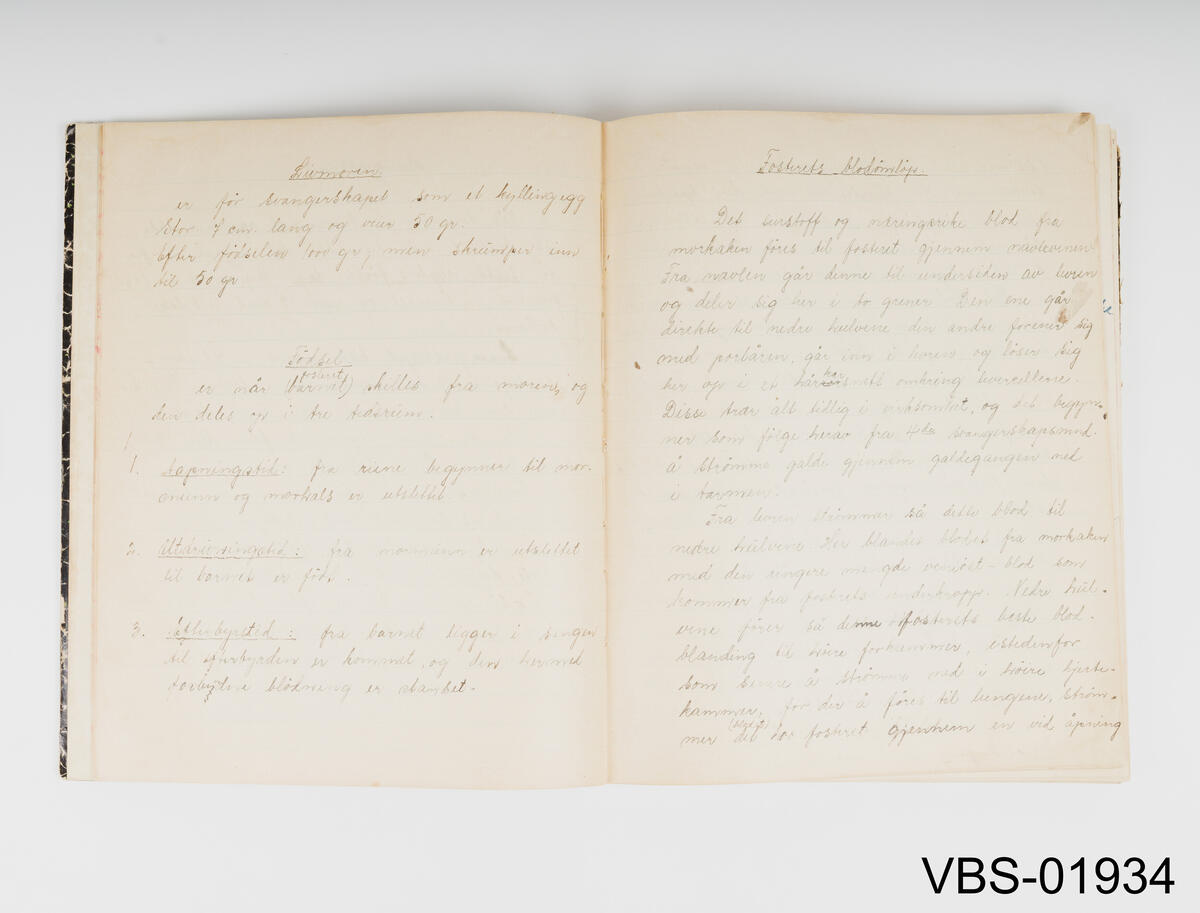 Livmoren
er før svangerskapet som et kyllingegg
stor 7 cm. lang og veier 50 gr.
Efter fødselen 1000 gr, men skrumper inn
til 50 gr
Fødsel
er når (barnet) fosteret skilles fra moren, og
den deles op i tre tidsrum.
1. Åapningstid: fra riene begynner til mor-
munn og morhals er utslettet.
2. Utdrivningstid: fra mormunn er utslettet
til barnet er født.
3. Efterbyrstid: fra barnet ligger i sengen
til efterbyrden er kommet, og den hermed
forbundne blødning er stanset.
Fosterets blodomløp.
Det surstoff og næringsrike blod fra
morkaken føres til fosteret gjennem navlevenen
Fra navlen går denne til undersiden av leveren
og deler sig her i to grener. Den ene går
direkte til nedre hulvene den andre forener sig
med portåren, går inn i leveren og løser sig
her op i et hårkarsnett omkring levercellene.
Disse trær alt tidlig i virksomhet, og det begyn-
ner som følge herav fra 4de svangerskapsmnd.
å strømme galde gjennem galdegangen ned
i tarmen.
Fra leveren strømmer så dette blod til
nedre hulvene. Her blandes blodet fra morkaken
med den ringere mengde venøst-blod som
kommer fra fosterets underkropp. Nedre hul-
vene fører så denne fosterets beste blod-
blanding til høire forkammer, istedenfor
som senere å strømme ned i høire hjerte-
kammer, for der å føres til lungene, strøm-
mer det (blodet) hos fosteret gjennem en vid åpning
VBS-01934